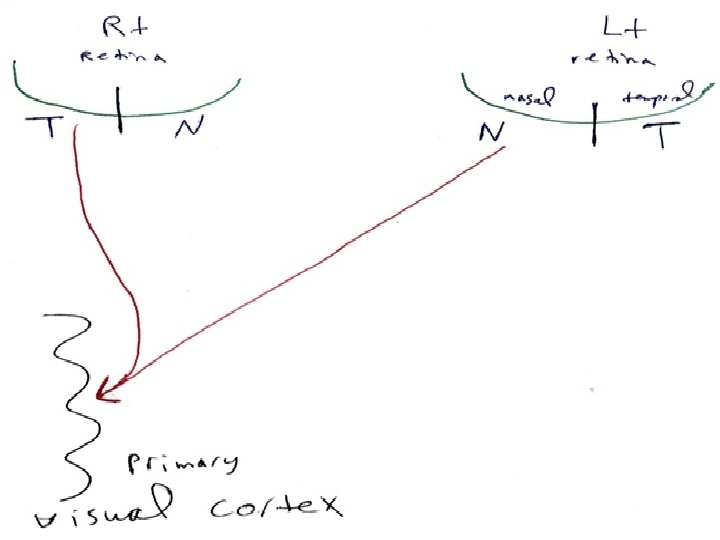 Rt
Retina
Lt
retina
nasal
temporal
T
N
N
T
Primary
visual cortex